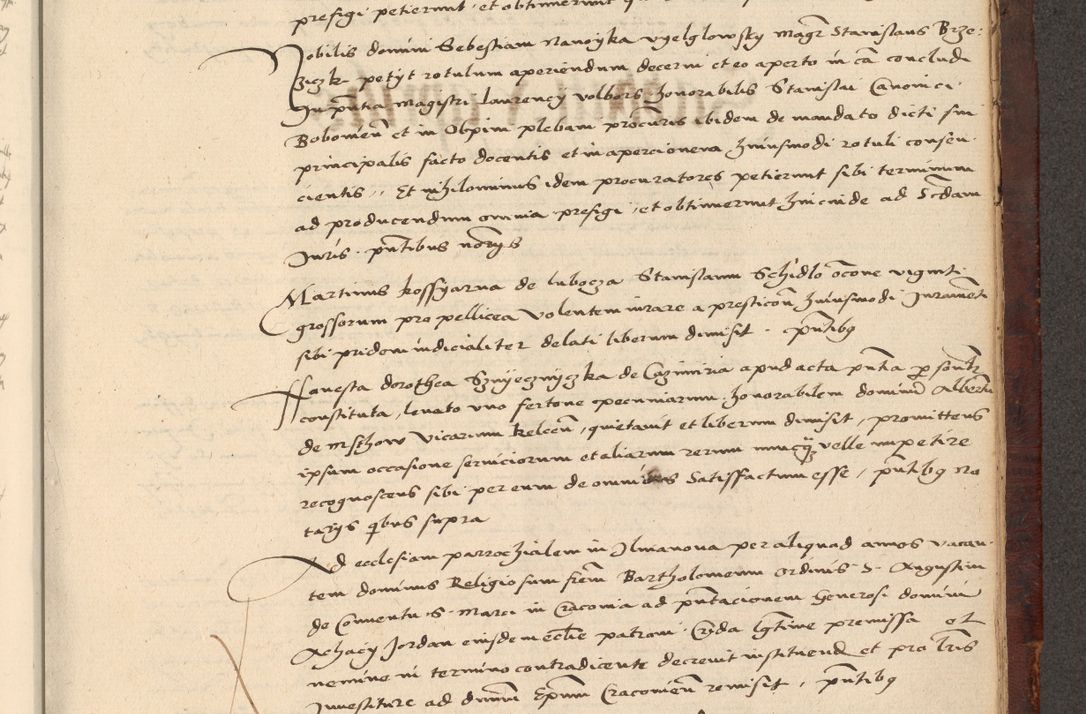 presigi petierunt et obtinuerunt
Nobilis domini Sebestiam Nanoyka vyelglowsky magr Stanislaus Brze:
ziczk petyt rotulum aperiendum decerni et eo aperto in ca concludi
In pntia magistri laurency volbors honorabilis Stanislai Canonici
Bobomen et in Obpim plebani procuris ibidem de mandato dicti sui
principalis facto docentis et in apercionem huiusmodi rotuli consen
cientis Et nihilominus idem procuratores petierunt sibi terminum
ad producendum omnia presigi et obtinuerunt hincinde ad Scdam
Juris pntibus norys
Martinus kossyarna de lubocza Stanislaum Schidlo ocone viginti
grossorum pro pellicea volentem iurare a presticon huiusmodi Jurament
sibi pridem iudicialiter delati liberum dimisit pntibq
Honesta dorothea Sznyecznyczka de Cazimiria apud acta pntia p sontr
constituta, levato uno fertone pecuniarum honorabilem dominu Albertu
de msthow Vicarium kelcen, quietavit et liberum dimisit, promittens
ipsum occasione serviciorum et aliarum rerum nuncq velle impetire
recognoscens sibi per eum de omnibus Satisfactum esse, pntibq no
tarys qbus supra
Ad ecclesiam parrochialem in Ilmanova per aliquad annos vacan
tem dominus Religiosum frem Bartholomeum ordinis S. Augustini
de Conventu S. Marci in Craconia ad pntacionem Generosi domini
Achacy Jordan eiusdem eccie patroni Crida lgtime premissa et
nemine in termino contradicente decrevit instituend et pro lris
Investiture ad dnum Epum Cracovien remisit, pntibq